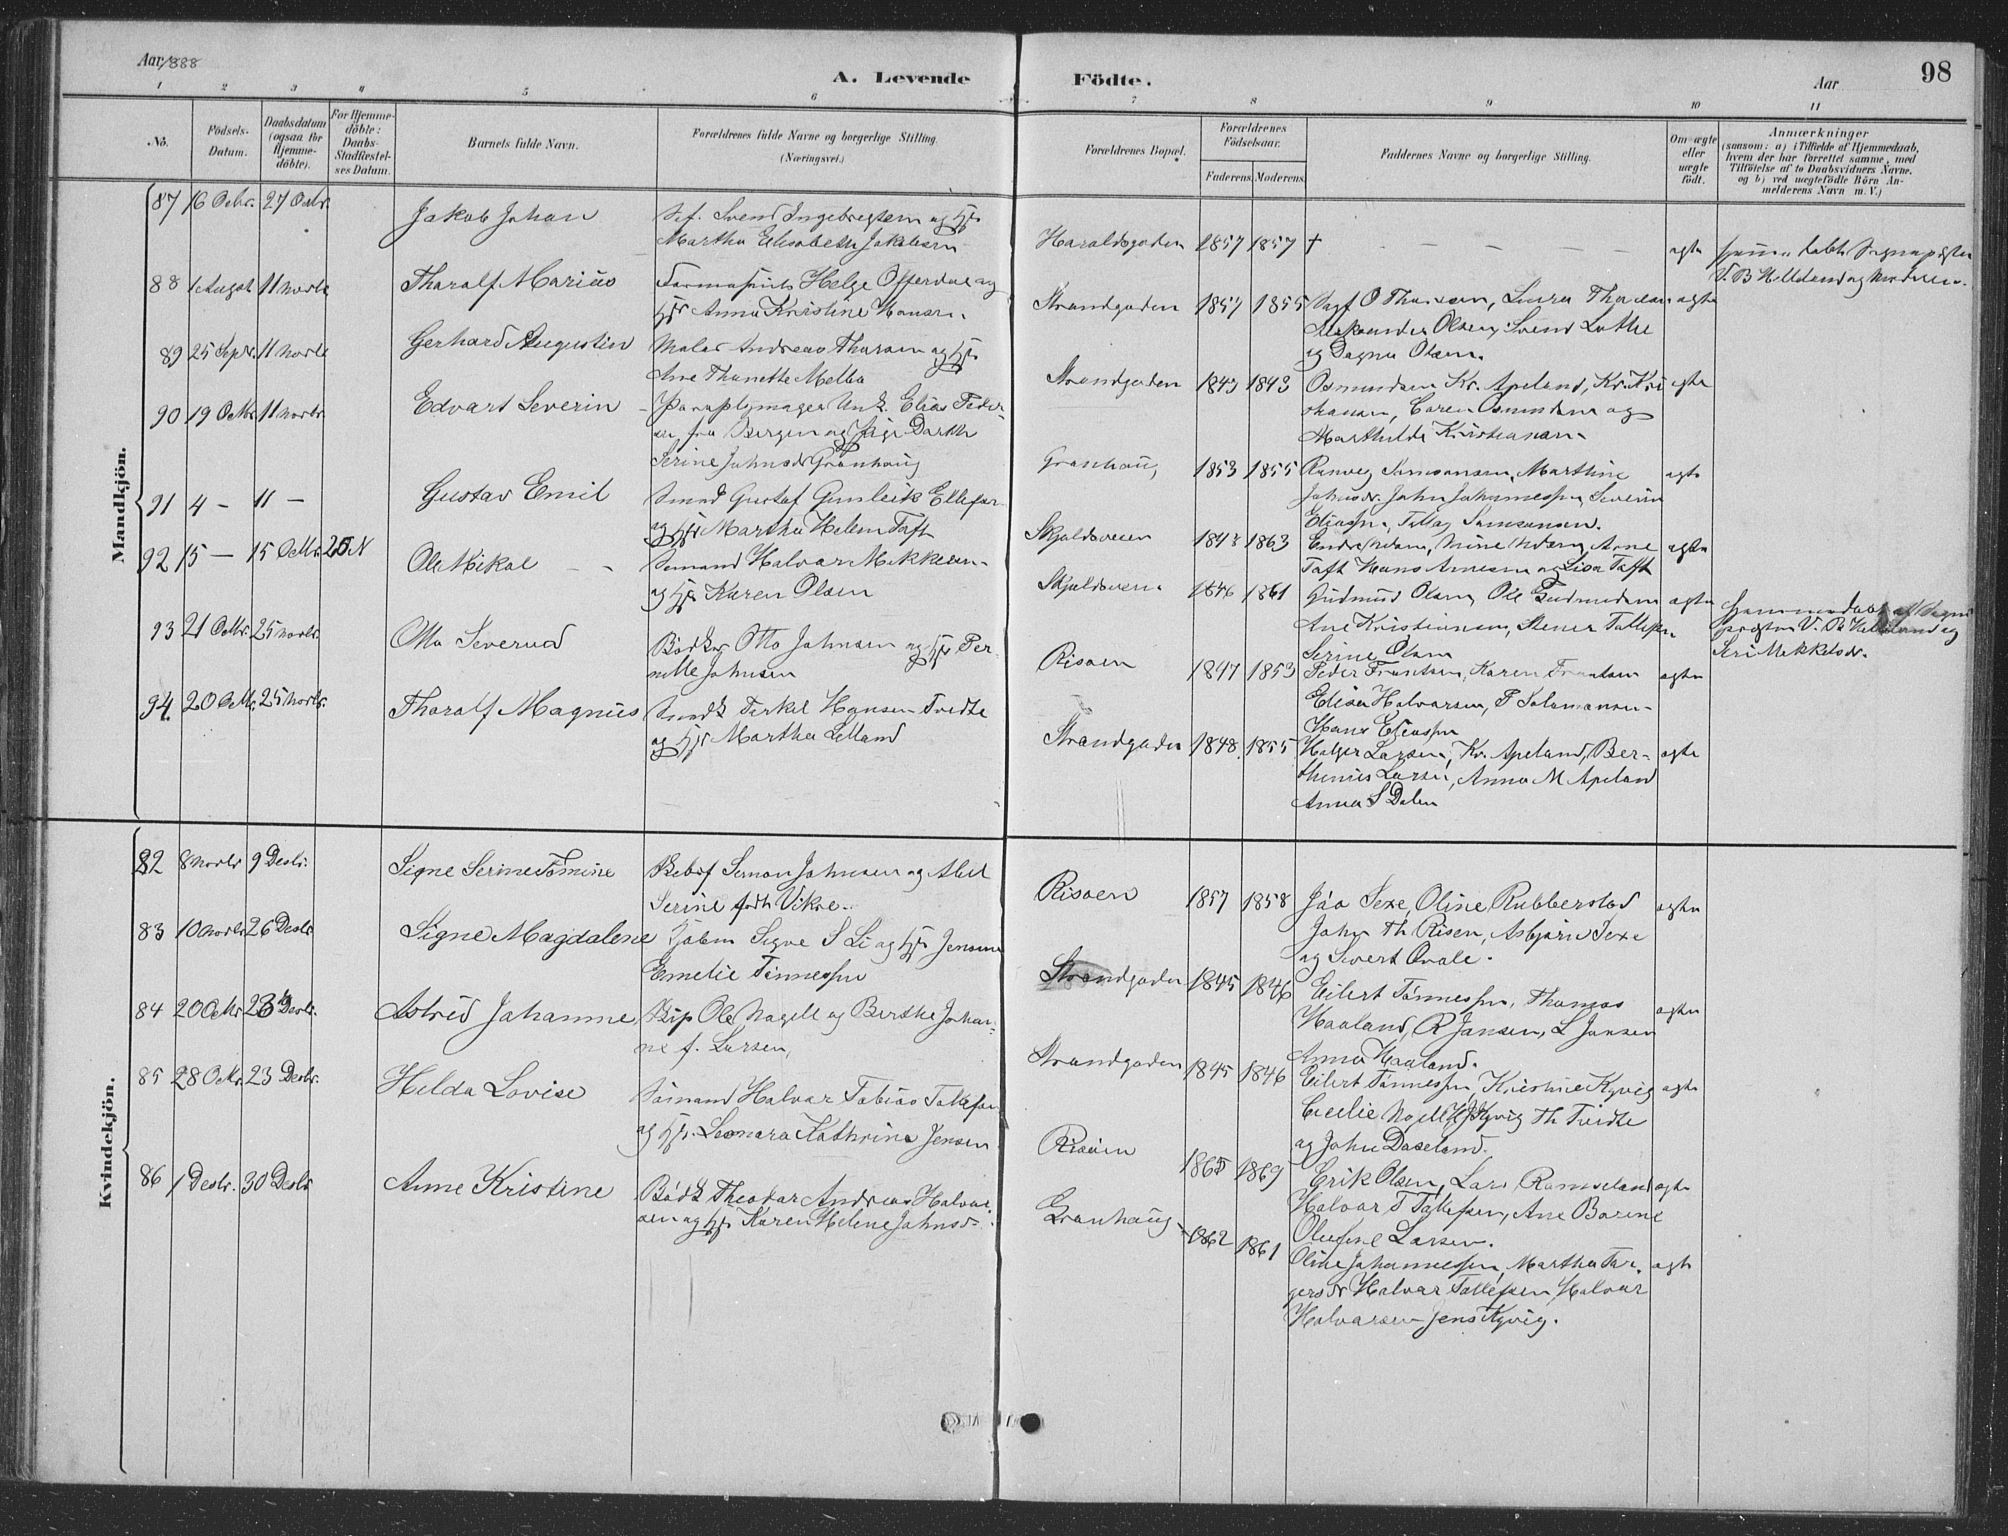 Aar 1888
A. Levende
Födte.
Aar
98
1 2 3 4 5 6 7 8 9 10 11
No.
Födsels-
Datum.
Daabsdatum
(ogsaa for
Hjemme-
döbte).
For Hjemme-
döbte:
Daabs-
Stadfæstel-
ses Datum.
Barnets fulde Navn.
Forældrenes fulde Navne og borgerlige Stilling.
(Næringsvei.)
Forældrenes Bopæl.
Forældrenes
Födselsaar.
Faderens. Moderens.
Faddernes Navne og borgerlige Stilling.
Om ægte
eller
uægte
födt.
Anmærkninger
(saasom: a) i Tilfælde af Hjemmedaab,
hvem der har forrettet samme, med
Tilföielse af to Daabsvidners Navne.
og b) ved uægtefödte Börn An-
melderens Navn m. V.)
Mandkjön.
87 16 Octbr. 27 Octbr. Jakob Johan
Svend Ingebregtsen og Hst
Martha Elisabeth Jakobsen
Haraldsgaden 1857 1857 † — — — — ægte
V. B Helleland og
88 1 August 11 Novbr Tharalf Marius
Helge Offerdal og
Hst Anna Kristine Hansen.
Strandgaden 1857 1855 O Thorsen, Laura Thorsen ægte
Aleksander Olsen, Svend Lothe
og Dagna Olsen.
89 25 Septr. 11 Novbr Gerhard Augustin
Maler Andreas Thorsen og Hst
Ane Thonette Melbo
Strandgaden 1843 1843 Osmundsen Kr. Apeland, Kr. Kri ægte
Caren Osmundsen og
Marthilde Kristiansen
90 19 Octbr. 11 Novbr. Edvart Severin
Paraplymager Elias Peder-
sen fra Bergen og Pige Dorthe
Serine Johnsdr Grønhaug
Grønhaug 1853 1855 Samsonsen, Marthine ægte
Johnsdr. John Johannessen, Severin
Eliassen, Samsonsen.
91 4 — 11 — Gustav Emil
Smed Gustaf Gunleik Ellefsen
og Hst Martha Helene Taft
Skjoldsveien 1863 ægte
Taft Hans Arnesen og Lisa Taft
92 15 — 15 Octbr. 25 N Ole Mikal
Sømand Halvar Mikkelsen
og Hst Karen Olsen
Skjoldsveien 1846 1861 Gudmund Olsen, Ole Gudmundsen ægte
Ane Kristiansen, Stener Tollefsen
Serine Olsen
Hjemmedøbt af Sogne
præsten V. B Helleland og
Siri Mikkelsdr.
93 21 Octbr. 25 Novbr. Otto Severud
Bødker Otto Johnsen og Hst Per-
nille Johnsen
Risøen 1847 1853 Peder Frantsen, Karen Frantsen ægte
Elisa Halvorsen, P Salomonsen
Hans Eliassen
94. 20 Octbr. 25 Novbr. Tharalf Magnus
Torkel Hansen Tvedte
og Hst Martha Lelland
Strandgaden 1848. 1855 Holger Larsen, Kr. Apeland, Ber- ægte
thinius Larsen, Anna M Apeland
Anna S Dalen
Kvindekjön.
82 8 Novbr 9 Desbr. Signe Serine Tomine
Simon Johnsen og Abel
Serine født Vikse
Risøen 1857 1858 Sexe, Oline Rubberstad ægte
John Th Risen, Asbjørn Sexe
og Sivert Qvale.
83 10 Novbr 26 Desbr. Signe Magdalene
S Li og Hst Jensine
Emelie Tønnessen
Strandgaden 1845 1846 Eilert Tønnessen, Thomas ægte
Haaland, R Jansen, L Jansen
Anna Haaland.
84 20 Octbr. Desbr. Astrid Johanne
Ole Nagell og Berthe Johan-
ne f. Larsen,
Strandgaden 1845 1846 Eilert Tønnessen, Kristine Kyvig ægte
Cecilie Nagell, Kyvig Th Tvedte
og John Daseland.
85 28 Octbr. 23 Desbr. Helda Lovise
Sømand Halvar Tobias Tollefsen
og Hst. Leonora Kathrine Jensen
Risøen 1865 1869 Erik Olsen, Lars Ramseland ægte
Halvar T Tollefsen, Ane Borine
Olufine Larsen.
86 1 Desbr. 30 Desbr Anne Kristine
Theodor Andreas Halvor
sen og Hst Karen Helene Johnsdr.
Grønhaug 1862 1861 Oline Johannessen, Martha Tor- ægte
gersdr Halvar Tollefsen, Halvar
Halvorsen Jens Kyvig.